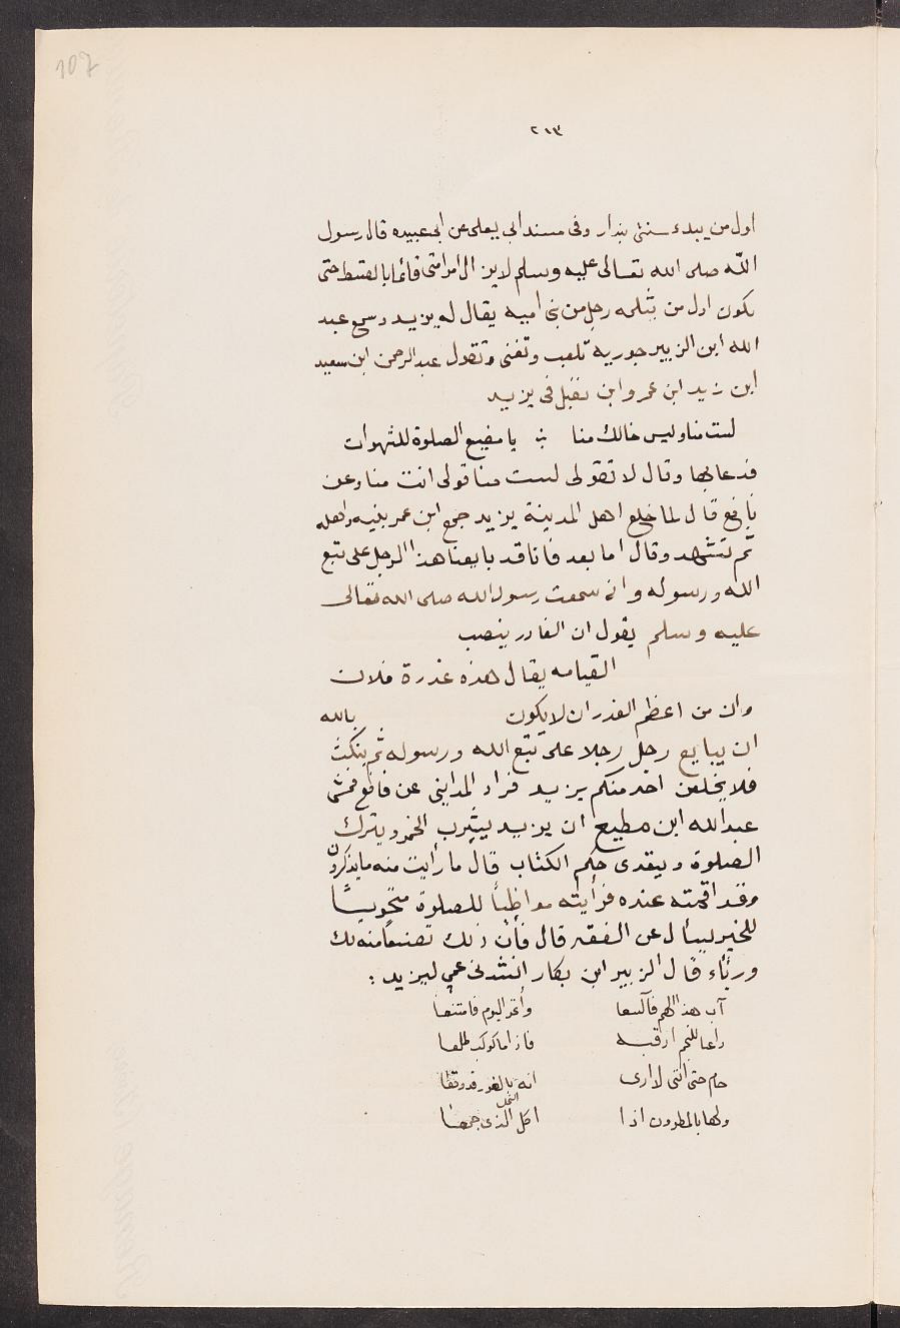 107
٢١٣
اول من يبدء سنتى بندار وفى مسند ابى يعلى عن ابى عبيده قال رسول
الله صلى الله تعالى عليه وسلم لايزال امر امتى قائما بالقسط حتى
يكون اول من يثلمه رجل من بنى اميه يقال له يزيد وسمع عبد
الله ابن الزبير جوريه تلعب وتغنى وتقول عبد الرحمن ابن سعيد
ابن زيد ابن عمرو ابن نفيل فى يزيد
لست منا وليس خالك منا يا مضيع الصلوة للشهوات
فدعا بها وقال لا تقولى لست منا قولى انت منا وعن
نافع قال لما خلع اهل المدينة يزيد جمع ابن عمر بنيه واهله
ثم تشهد وقال اما بعد فانا قد بايعنا هذا الرجل على تبع
الله ورسوله وانى سمعت رسول الله صلى الله تعالى
عليه وسلم يقول ان الغادر ينصب
القيامه يقال هذه غدرة فلان
وان من اعظم الغدر ان لا يكون بالله
ان يبايع رجل رجلا على تبع الله ورسوله ثم ينكث
فلا يخلعن احد منكم يزيد فزاد المداينى عن نافع فمشى
عبد الله ابن مطيع ان يزيد يشرب الخمر ويترك
الصلوة ويتعدى حكم الكتاب قال ما رايت منه ما يذكرون
وقد اقمته عنده فرأيته مواظباً للصلوة متحويساً
للخير يسأل عن الفقه قال فأن ذلك تصنعا منه لك
ورئاء قال الزبير ابن بكار انشدنى عمى ليزيد :
آب هذا الهم فآكتنعا وأتمر اليوم فامتنعا
راعيا للنجم ارقبه فاذا ما كوكب طلعا
حام حتى اننى لا ارى انه بالغور قد وقعا
ولها بالماطرون اذا اكل النمل الذى جمعا